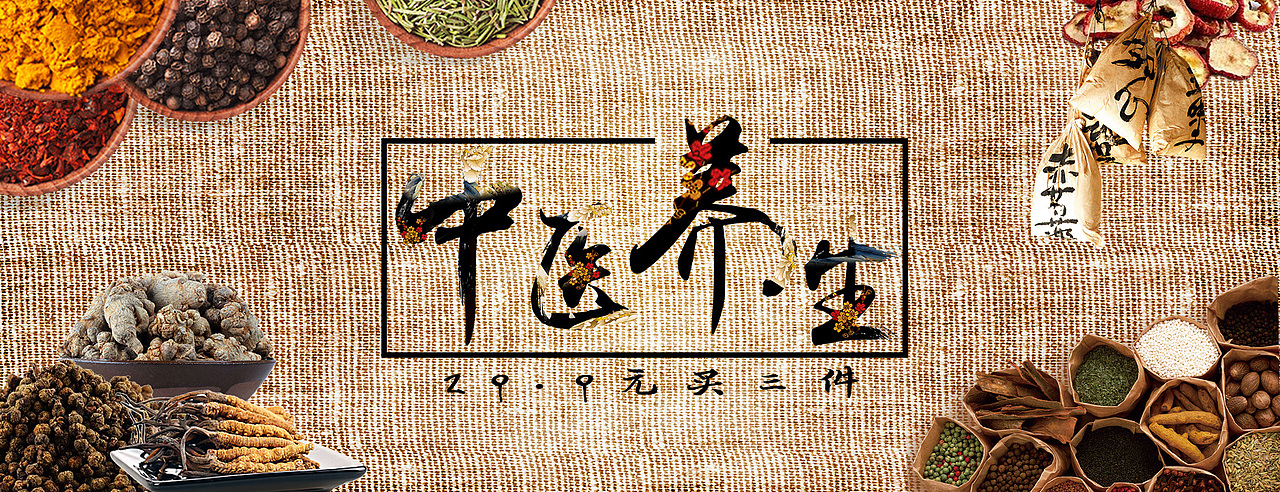 中医养生
29.9元买三件